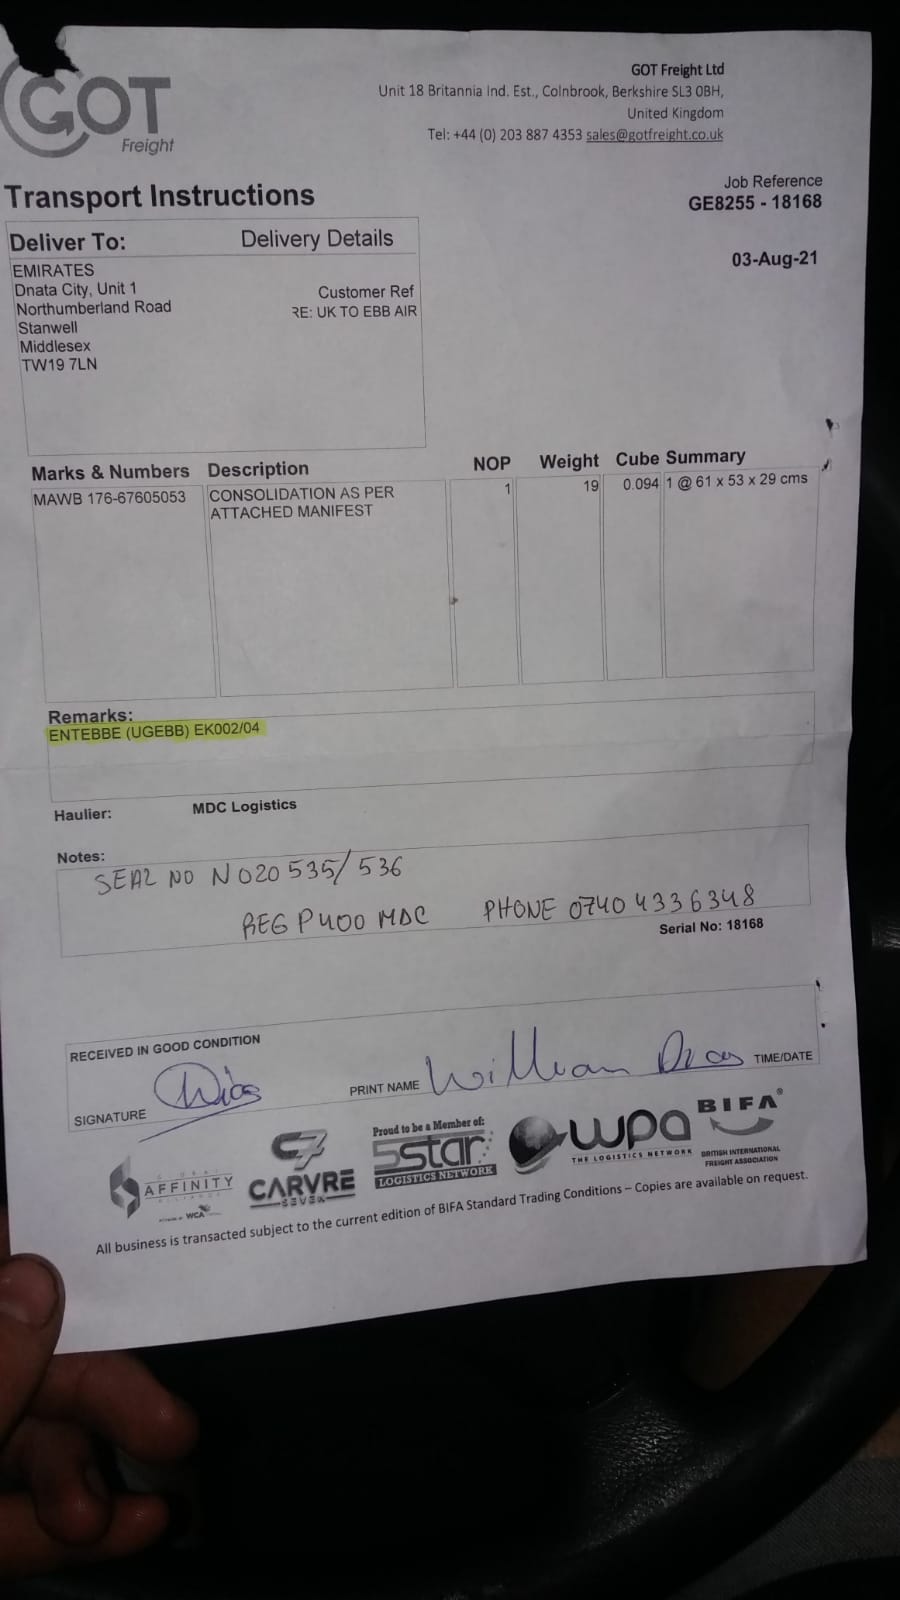 GOT
Freight
GOT Freight Ltd
Unit 18 Britannia Ind. Est., Colnbrook, Berkshire SL3 0BH,
United Kingdom
Tel: +44 (0) 203 887 4353 sales@gotfreight.co.uk
Transport Instructions
Job Reference
GE8255 - 18168
03-Aug-21
Deliver To: Delivery Details
EMIRATES
Dnata City, Unit 1
Northumberland Road
Stanwell
Middlesex
TW19 7LN
Customer Ref
RE: UK TO EBB AIR
Marks & Numbers Description NOP Weight Cube Summary
MAWB 176-67605053 CONSOLIDATION AS PER 1 19 0.094 1 @ 61 x 53 x 29 cms
ATTACHED MANIFEST
Remarks:
ENTEBBE (UGEBB) EK002/04
Haulier: MDC Logistics
Notes:
SEAL NO N020535/536
REG P400 MDC PHONE 07404336348
Serial No: 18168
RECEIVED IN GOOD CONDITION
SIGNATURE PRINT NAME William TIME/DATE
AFFINITY
WCA
C7
CARVRE
SEVEN
Proud to be a Member of:
5star
LOGISTICS NETWORK
wpa
THE LOGISTICS NETWORK
BIFA®
BRITISH INTERNATIONAL
FREIGHT ASSOCIATION
All business is transacted subject to the current edition of BIFA Standard Trading Conditions – Copies are available on request.